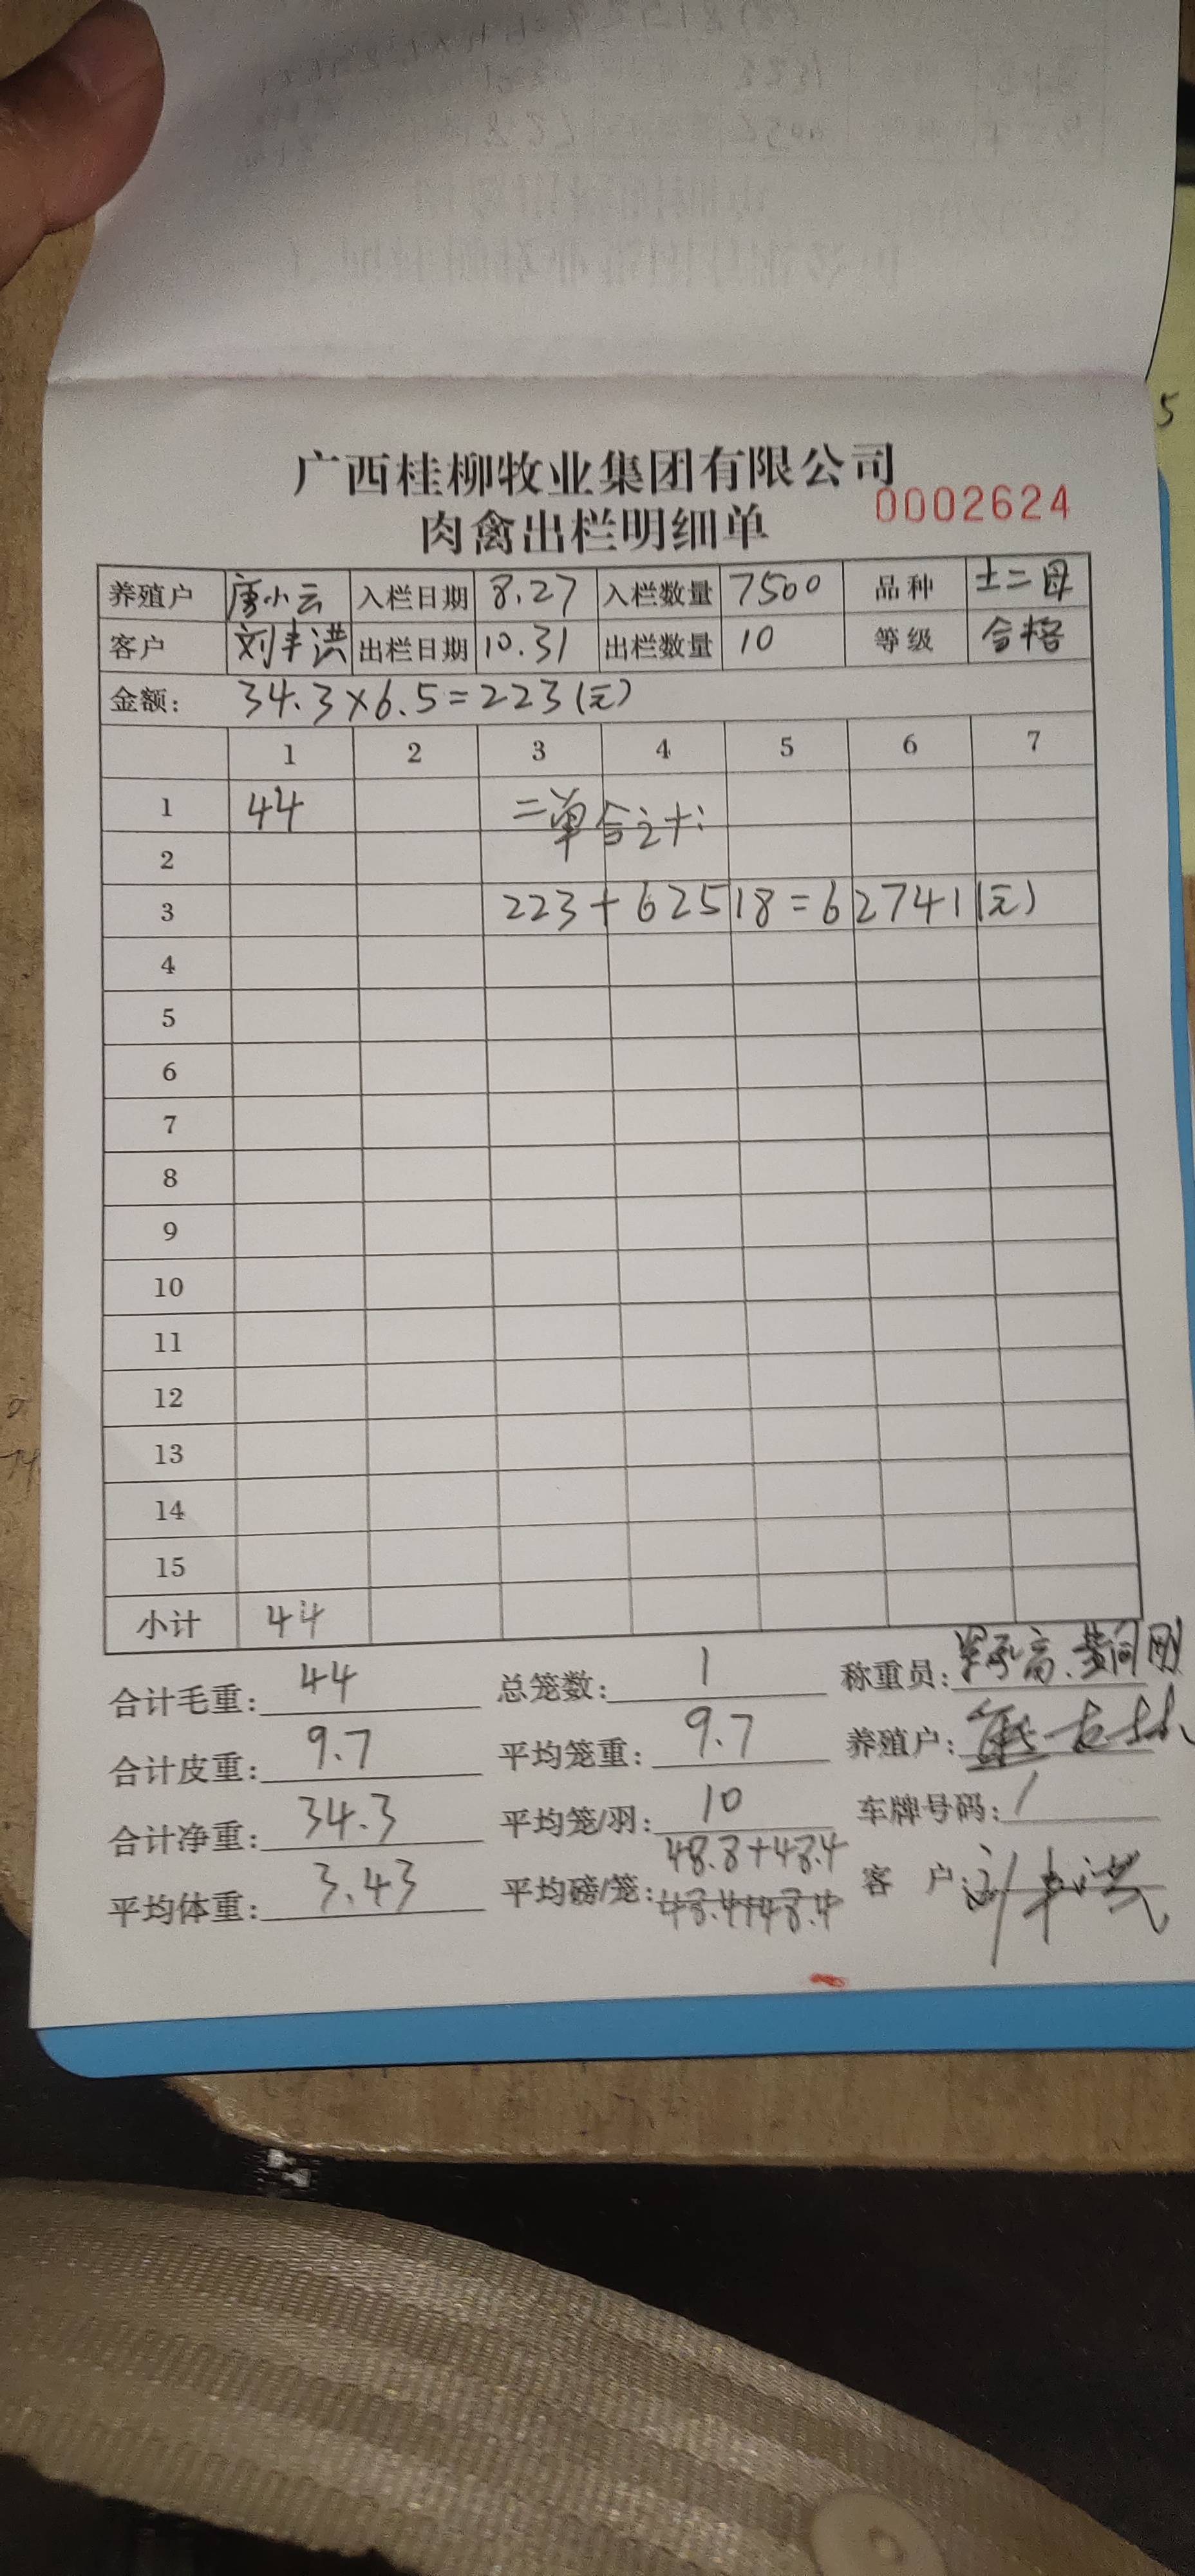 广西桂柳牧业集团有限公司
0002624
肉禽出栏明细单
养殖户 唐小云 入栏日期 8.27 入栏数量 7500 品种 土二母
客户 刘丰洪 出栏日期 10.31 出栏数量 10 等级 合格
金额: 34.3×6.5=223(元)
1 2 3 4 5 6 7
1 44 二单合计:
2
3 223+62518=62741(元)
4
5
6
7
8
9
10
11
12
13
14
15
小计 44
合计毛重: 44 总笼数: 1 称重员:
合计皮重: 9.7 平均笼重: 9.7 养殖户:
合计净重: 34.3 平均笼/羽: 10 车牌号码: /
48.8+48.4
平均体重: 3.43 平均磅/笼: 48.4+48.4 客户: 刘丰洪
5